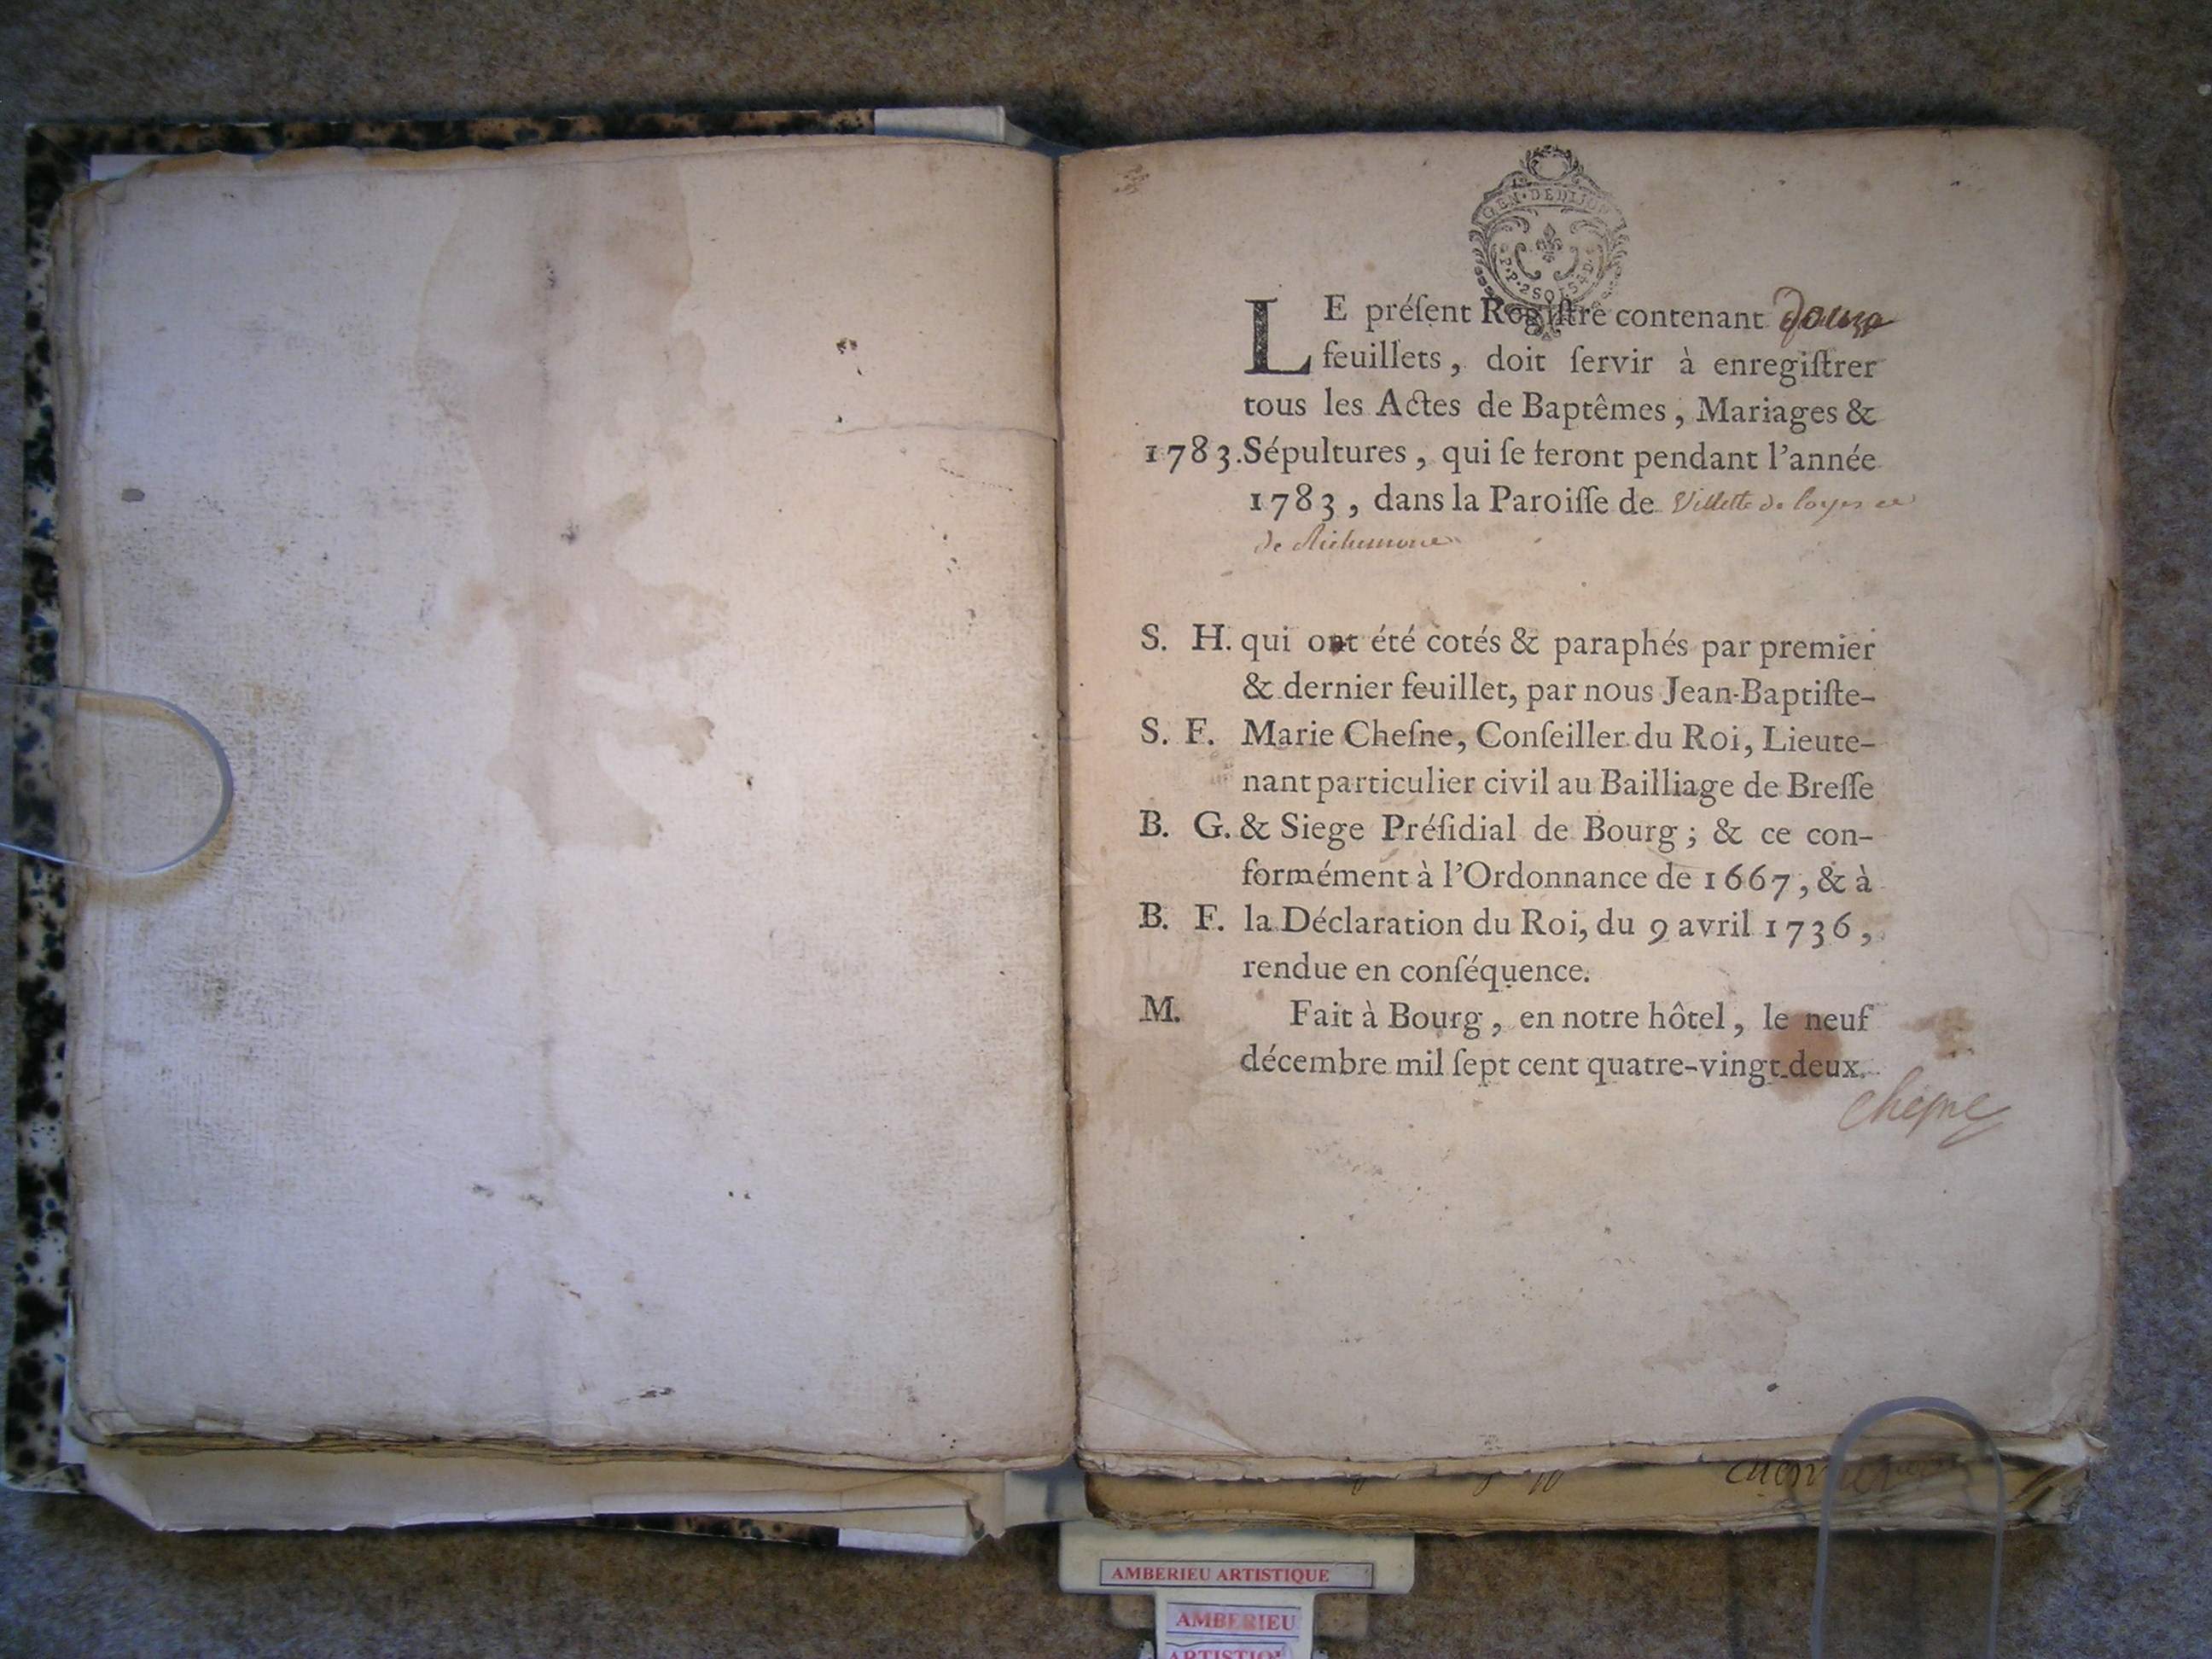 GEN · DE DIJON
P · P · 2 SOLS 4 D.
LE préſent Regiſtre contenant douze
feuillets, doit ſervir à enregiſtrer
tous les Actes de Baptêmes, Mariages &
1783. Sépultures, qui ſe feront pendant l'année
1783, dans la Paroiſſe de Villette de loyes et
de Richemont
S. H. qui ont été cotés & paraphés par premier
& dernier feuillet, par nous Jean-Baptiſte-
S. F. Marie Cheſne, Conſeiller du Roi, Lieute-
nant particulier civil au Bailliage de Breſſe
B. G. & Siege Préſidial de Bourg; & ce con-
formément à l'Ordonnance de 1667, & à
B. F. la Déclaration du Roi, du 9 avril 1736,
rendue en conſéquence.
M. Fait à Bourg, en notre hôtel, le neuf
décembre mil ſept cent quatre-vingt-deux.
Cheſne
AMBERIEU ARTISTIQUE
AMBERIEU